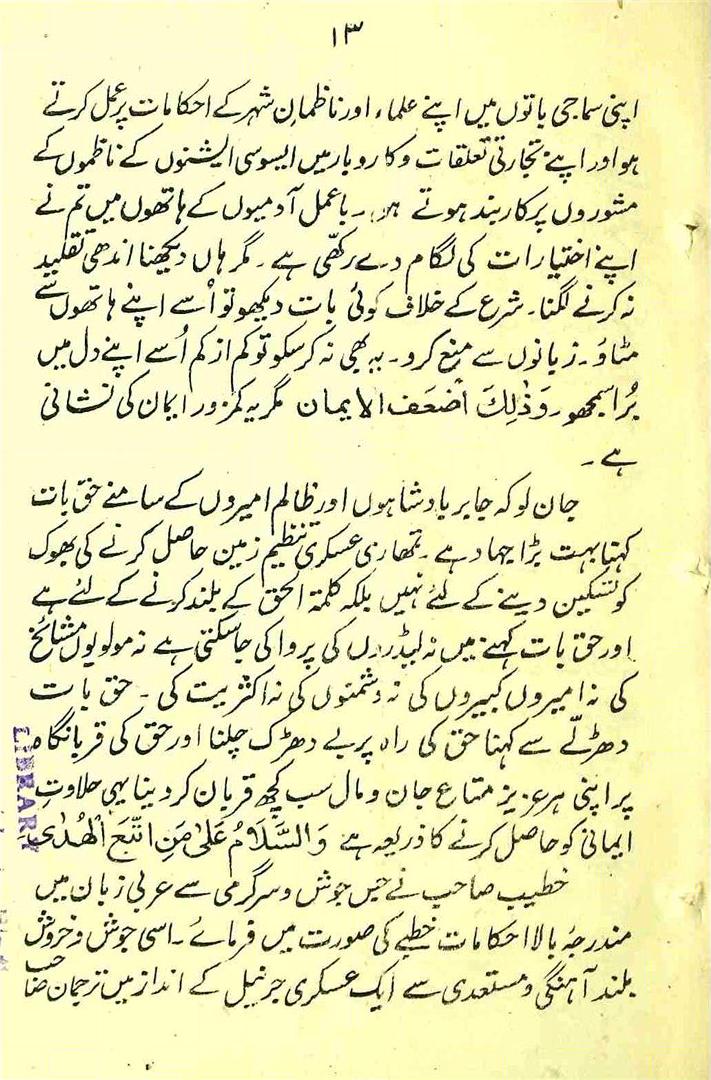 ۱۳
اپنی سماجی باتوں میں اپنے علماء اور ناظمانِ شہر کے احکامات پر عمل کرتے
ہو اور اپنے تجارتی تعلقات و کاروبار میں ایسوسی ایشنوں کے ناظموں کے
مشوروں پر کاربند ہوتے ہو۔ باعمل آدمیوں کے ہاتھوں میں تم نے
اپنے اختیارات کی لگام دے رکھّی ہے۔ مگر ہاں دیکھنا اندھی تقلید
نہ کرنے لگنا۔ شرع کے خلاف کوئی بات دیکھو تو اُسے اپنے ہاتھوں سے
مٹاؤ۔ زبانوں سے منع کرو۔ یہ بھی نہ کرسکو تو کم از کم اُسے اپنے دل میں
بُرا سمجھو۔ وَذٰلِکَ اَضْعَف الایمان مگر یہ کمزور ایمان کی نشانی
ہے۔
جان لو کہ جابر بادشاہوں اور ظالم امیروں کے سامنے حق بات
کہنا بہت بڑا جہاد ہے۔ تمھاری عسکری تنظیم زمین حاصل کرنے کی بھوک
کو تسکین دینے کے لئے نہیں بلکہ کلمۃ الحق کے بلند کرنے کے لئے ہے
اور حق بات کہنے میں نہ لیڈروں کی پروا کی جاسکتی ہے نہ مولویوں مشائخ
کی نہ امیروں کبیروں کی نہ دشمنوں کی نہ اکثریت کی۔ حق بات
دھڑلّے سے کہنا حق کی راہ پر بے دھڑک چلنا اور حق کی قربانگاہ
پر اپنی ہر عزیز متاع جان و مال سب کچھ قربان کر دینا یہی حلاوتِ
ایمانی کو حاصل کرنے کا ذریعہ ہے وَالسَّلَامُ عَلیٰ مَنِ اتَّبَعَ الْھُدٰی
خطیب صاحب نے جس جوش و سرگرمی سے عربی زبان میں
مندرجہ بالا احکامات خطبے کی صورت میں فرمائے۔ اسی جوش و خروش
بلند آہنگی و مستعدی سے ایک عسکری جرنیل کے انداز میں ترجمان صاحب
LIBRARY